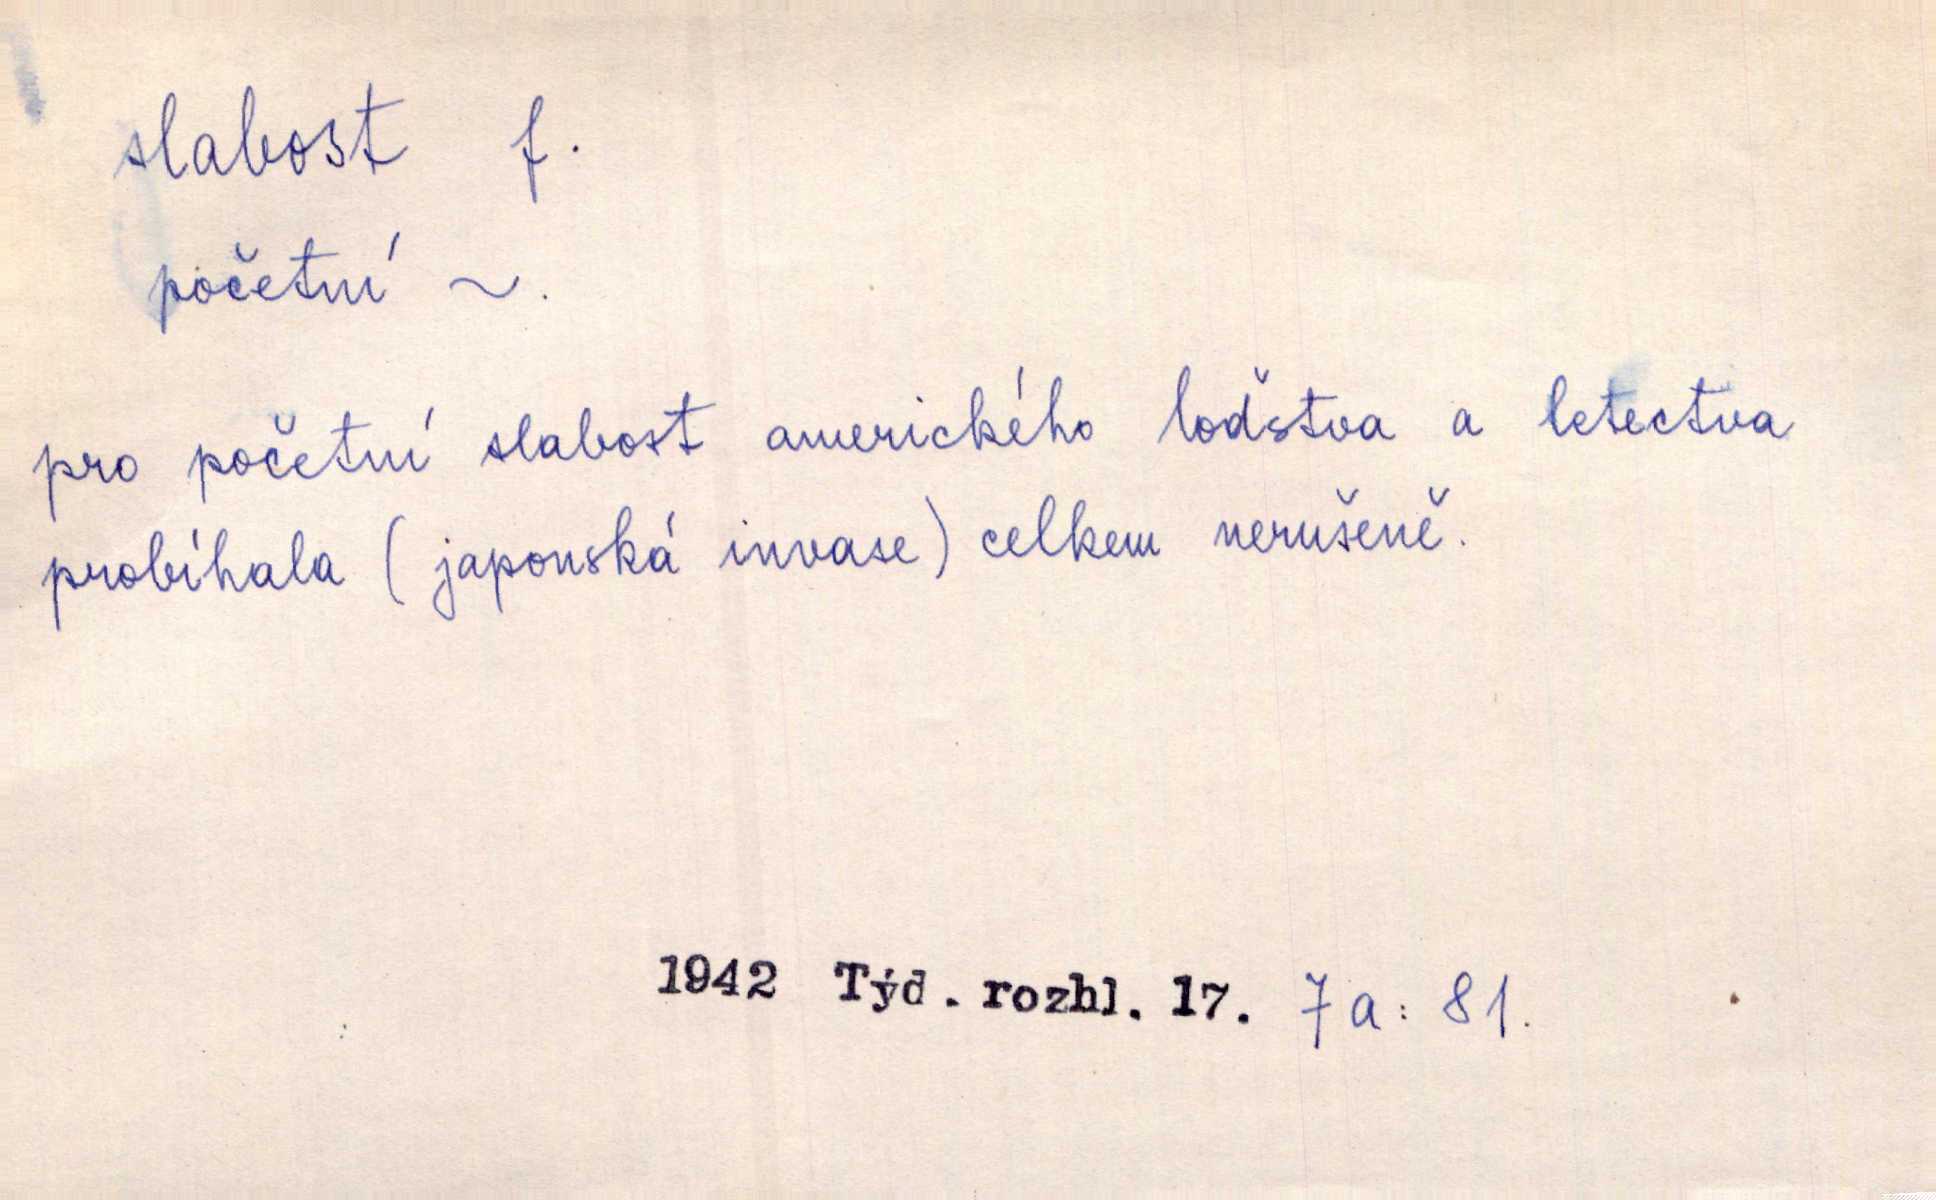 slabost f.
početní ~.
pro početní slabost amerického loďstva a letectva
probíhala (japonská invase) celkem nerušeně.
1942 Týd. rozhl. 17. 7a: 81.